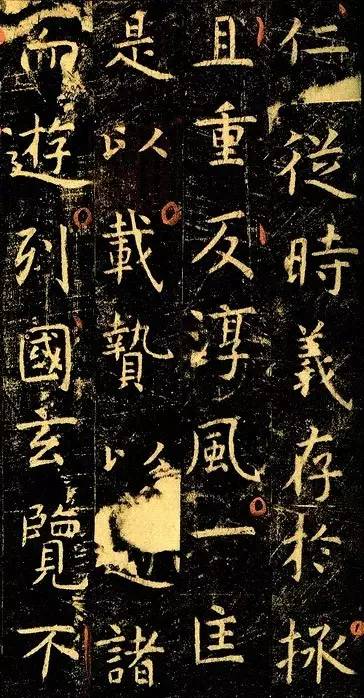 仁從時義存於拯
且重反淳風一匡
是以載贄以諸
而遊列國玄覽不